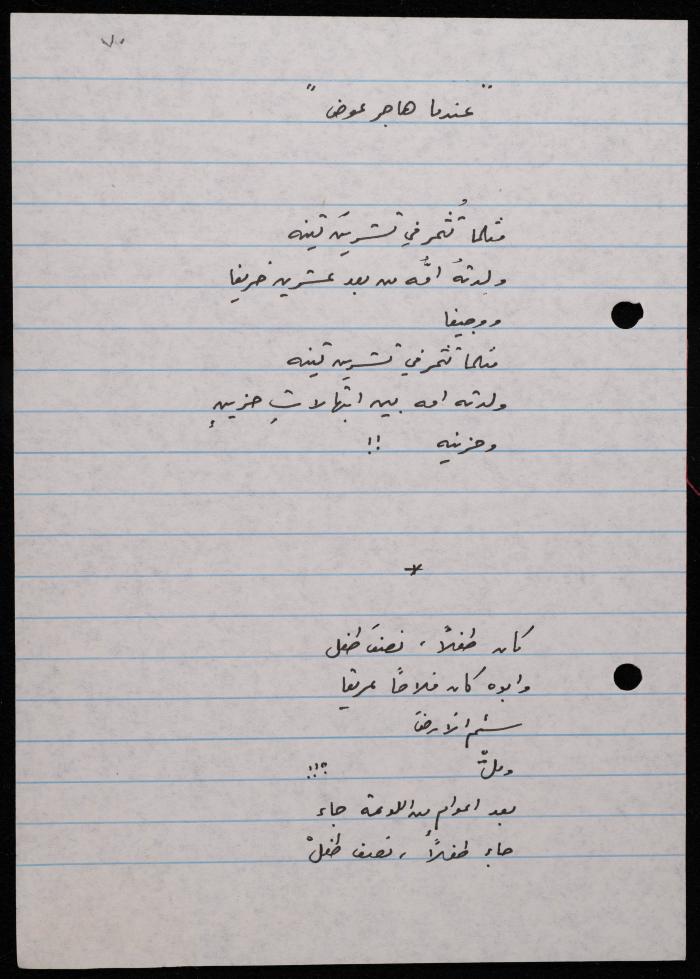 ٧٠
"عندما هاجر عوض"
مثلما تُثمر في تشرينَ تينه
ولدتهُ امُّه من بعد عشرين خريفا
ووجيفا
مثلما تثمر في تشرين تينه
ولدته امه بين ابتهالاتِ حزينٍ
وحزينه !!
*
كان طفلاً، نصفَ طفل
وابوه كان فلاحاً عريقا
سئم الارضَ
وملَّ !!!
بعد اعوام من اللوعة جاء
جاء طفلاً، نصف طفلْ